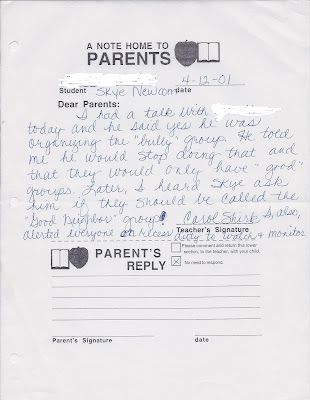 A NOTE HOME TO
PARENTS
4-12-01
Student Skye Newcom date
Dear Parents:
I had a talk with
today and he said yes he was
organizing the "bully" group. He told
me he would stop doing that and
that they would only have "good"
groups. Later, I heard Skye ask
him if they should be called the
"Good Neighbor" group. Carol Shirk I, also,
Teacher's Signature
alerted everyone on recess duty to watch & monitor
PARENT'S
REPLY
Please comment and return this lower
section, to the teacher, with your child.
No need to respond.
Parent's Signature date